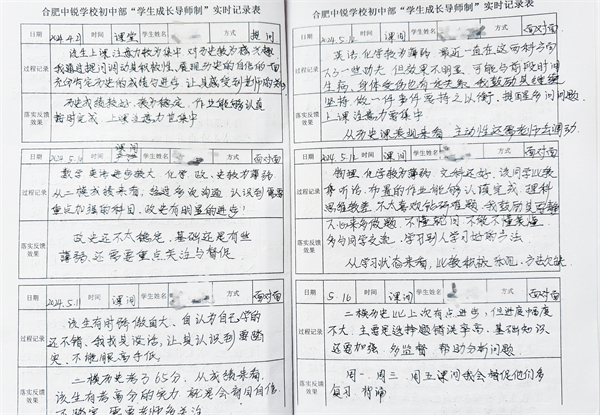 合肥中锐学校初中部“学生成长导师制”实时记录表
日期 2024.4.21 时间 课堂 学生姓名 方式 提问
过程记录
该生上课注意力较为集中 对历史较为感兴趣
我通过提问调动其积极性。展现历史的自信的一面
充分肯定历史的成绩与进步,让其感受到老师的关
落实反馈
效果
历史成绩较好,较为稳定,作业能够认真
按时完成,上课注意力更集中
日期 2024.5. 时间 课间 学生姓名 方式 面对面
过程记录
数学 英语进步较大 化学 政、史较为薄弱
从二模成绩来看,经过多次沟通 认识到需要
重点加强的科目,政史有明显的进步!
落实反馈
效果
政史还不太稳定,基础还是有些
薄弱,还需要重点关注与督促
日期 2024.5.11 时间 课间 学生姓名 方式 面对面
过程记录
该生有时骄傲自大、自认为自己学的
还不错,我找其谈话,让其认识到要踏
实、不能眼高手低。
落实反馈
二模历史考了65分,从成绩来看,
该生有考高分的实力 就是会盲目自信
不踏实 需要老师多关注
合肥中锐学校初中部“学生成长导师制”实时记录表
日期 2024.5.12 时间 课间 学生姓名 方式 面对面
过程记录
英语 化学较为薄弱 最近一直在这两科方面
下了一些功夫 但效果不明显,可能与前段时间
生病,身体受伤也有关系,我鼓励其继续
坚持 做一件事件贵持之以衡,提醒多问问题
落实反馈
效果
上课注意力要集中
从历史课表现来看,主动性还需老师去调动
日期 2024.5.12 时间 课间 学生姓名 方式 面对面
过程记录
物理 化学较为薄弱 文科还好,该同学比较
听话,布置的作业能够认真完成,理科
思维较差 不太喜欢钻研难题,我鼓励其
心来多做题 不懂就问 不能不懂装懂
多与同学交流,学习别人学习好的方法
落实反馈
效果
从学习状态来看,比较积极乐观,方法欠缺
日期 5.16 时间 课间 学生姓名 方式 面对面
过程记录
二模历史比上次有点进步,但进度幅度
不大,主要是选择题错误率高,基础知识
还要加强,多监督 帮助分析问题
落实反馈
效果
周一、周三、周五课间我会督促他们多
复习、背诵